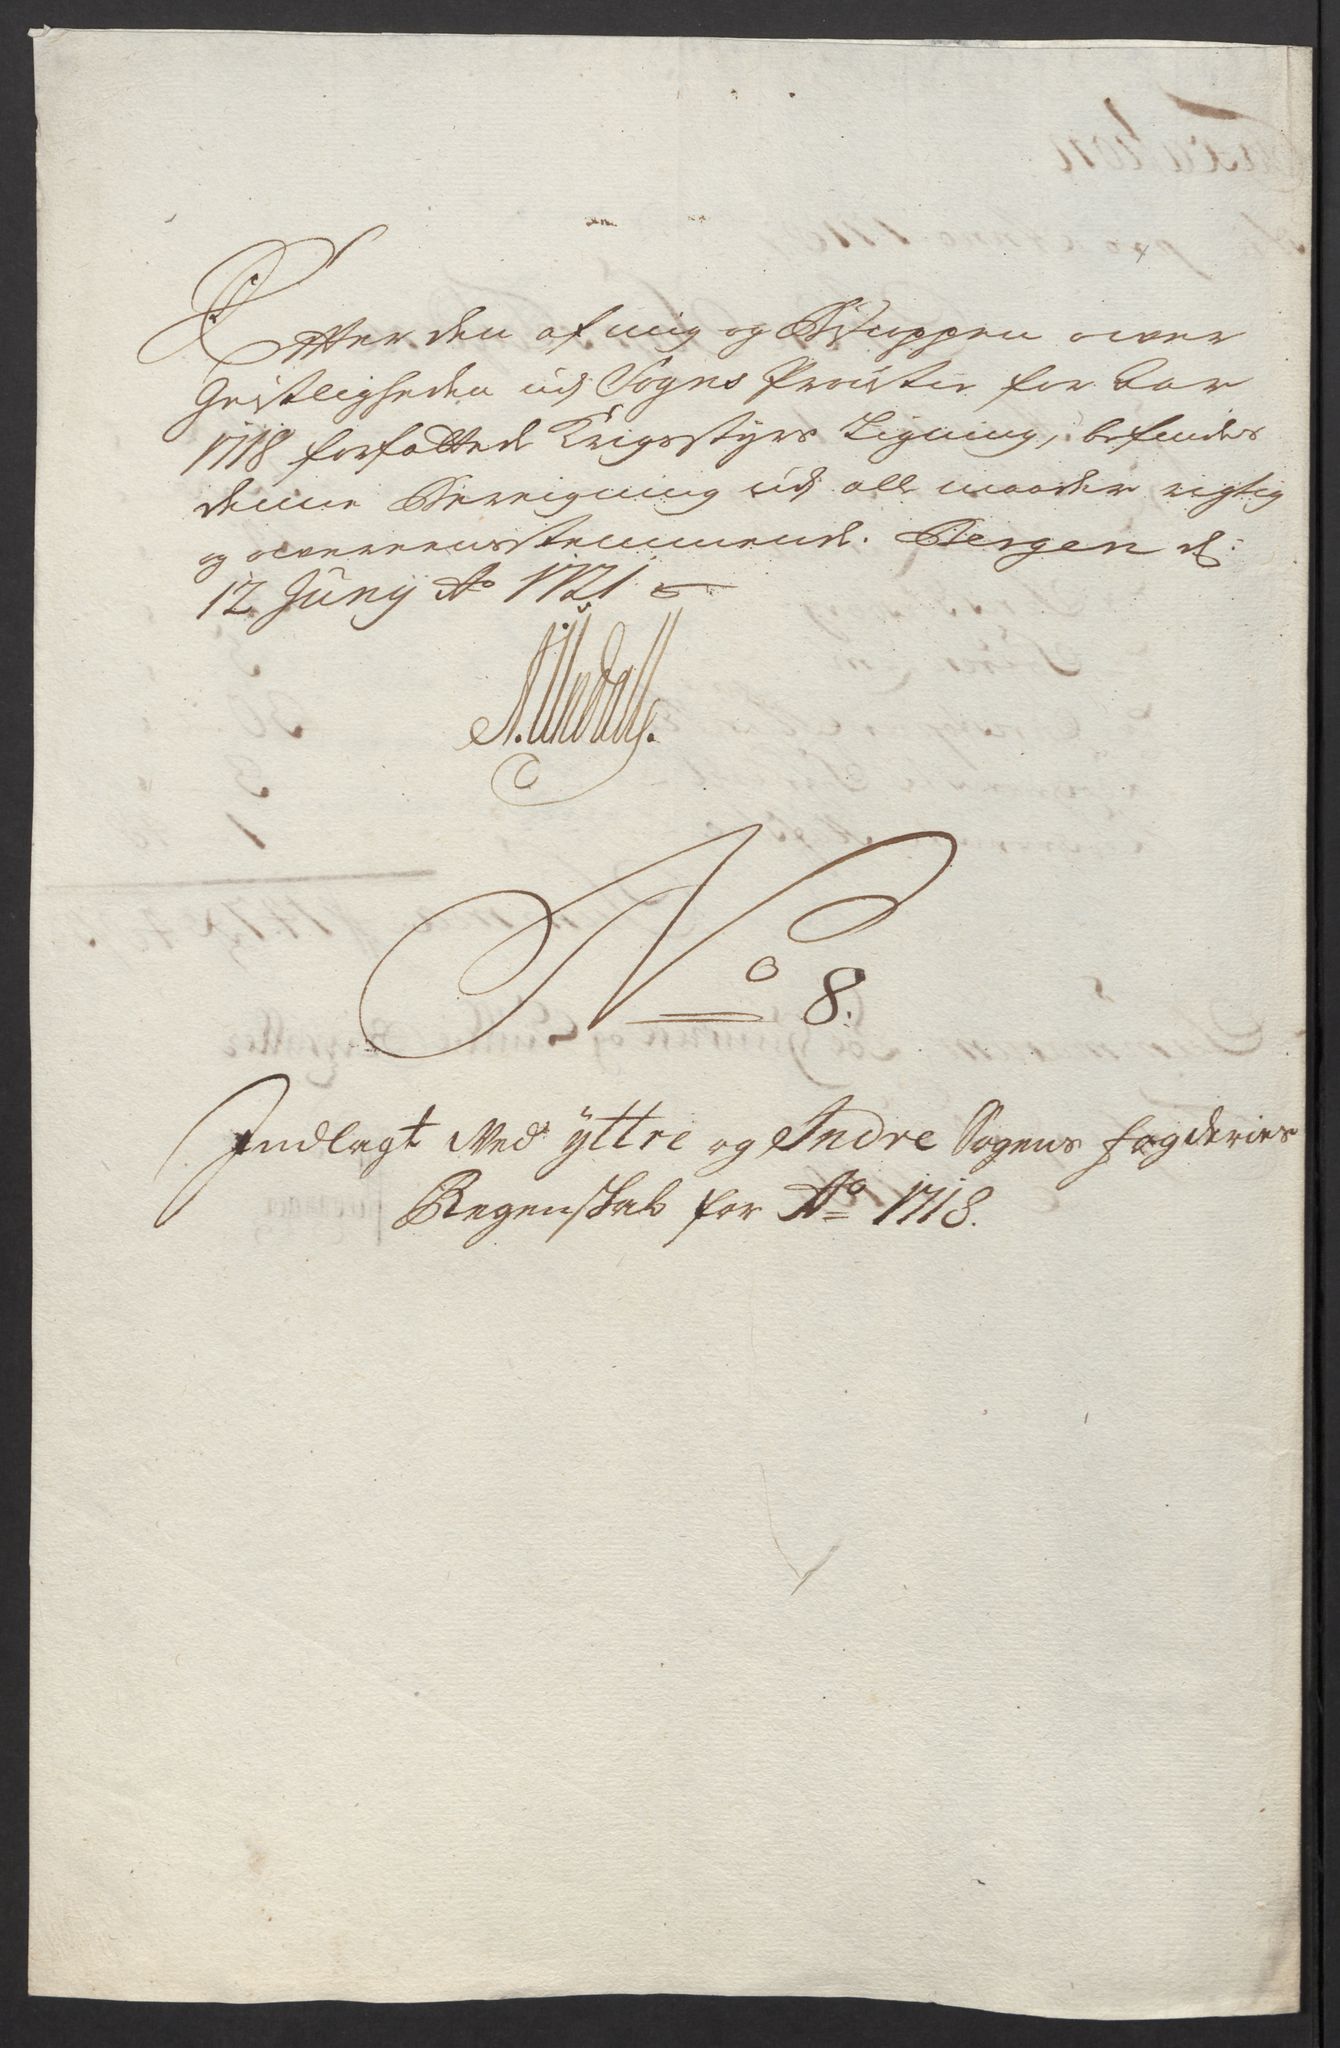 Efter den af mig og Biscoppen over
Geistligheden udj Sogns Proustie for Aar
1718 forfattede Krigsstyrs Ligning, befindes
denne Beregning udj alle maader rigtig
og overeensstemmende. Bergen d:
12 Juny Ao 1721
No 8.
Indlagt Ved Yttre og Indre Sogens fogderies
Regenskab for Ao 1718.